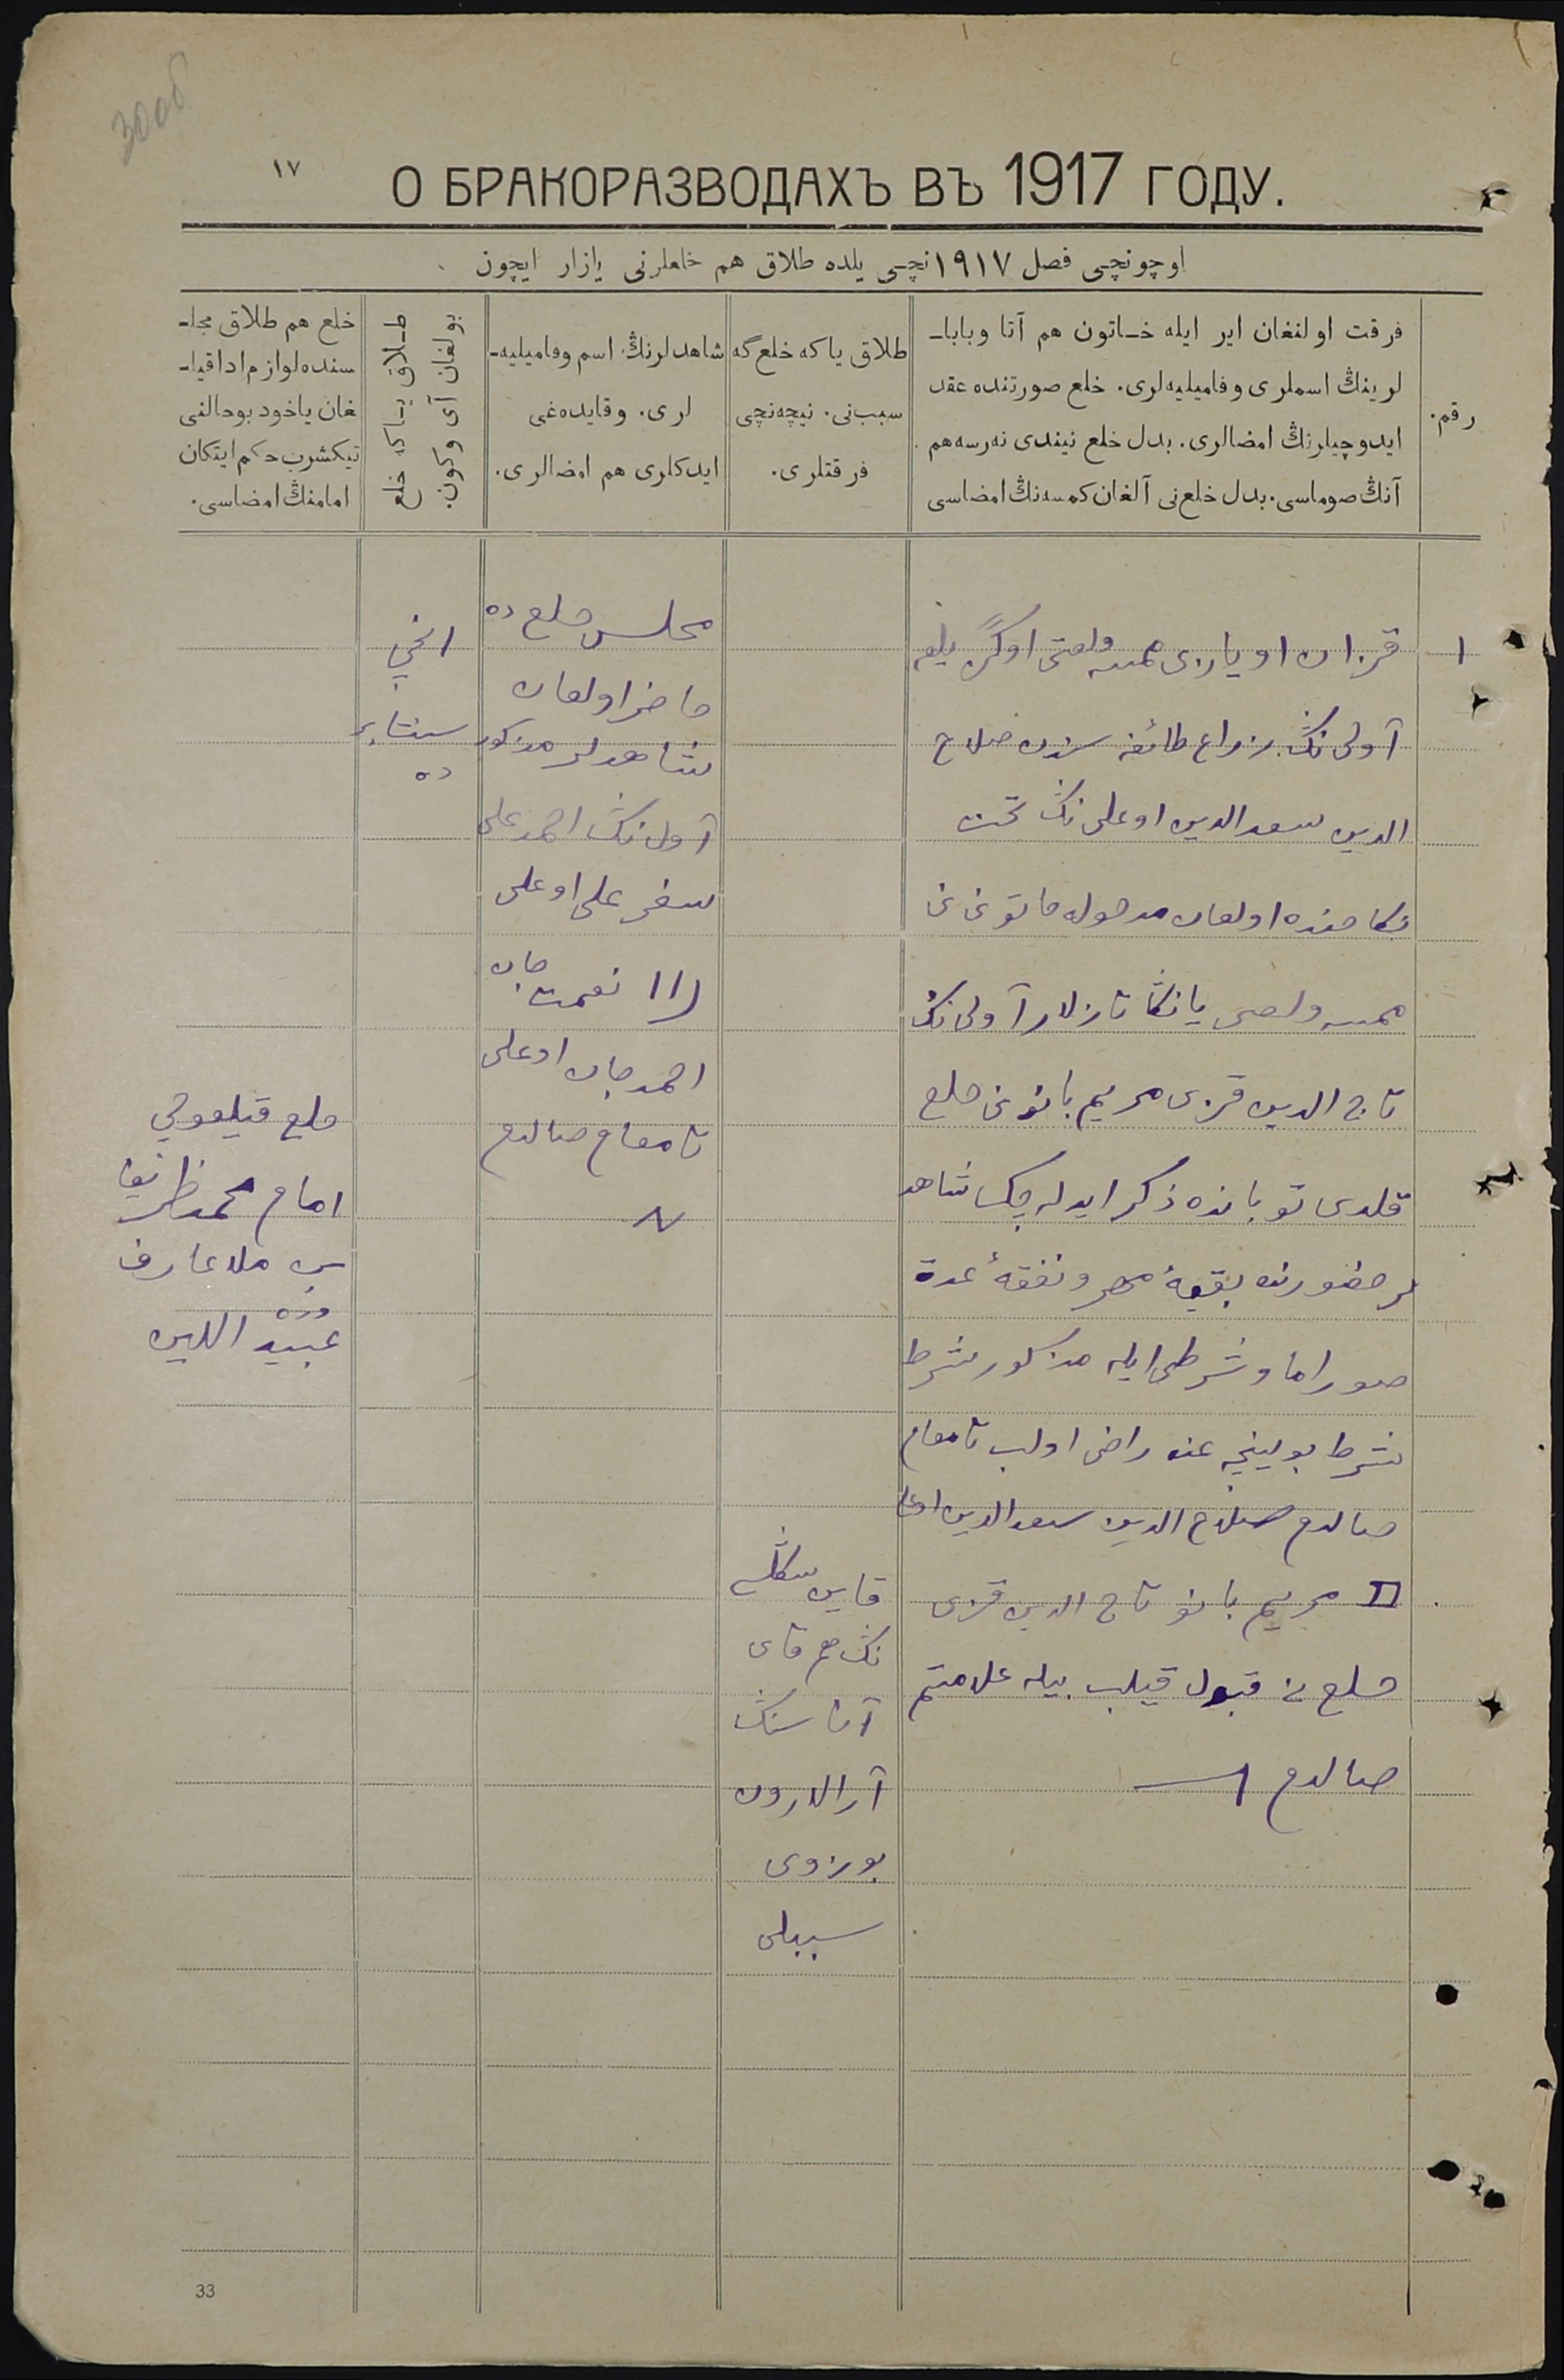 30об
١٧
О БРАКОРАЗВОДАХЪ ВЪ 1917 ГОДУ.
اوچونچی فصل ١٩١٧نچی یلده طلاق هم خلعلرنی یازار ایچون
رقم.
فرقت اولنغان ایر ایله خاتون هم آتا وبابا-
لرینڭ اسملری وفامیلیه‌لری. خلع صورتنده عقد
ایدوچیلرنڭ امضالری. بدل خلع نیندی نه‌رسه هم
آنڭ صوماسی. بدل خلع‌نی آلغان کمسه‌نڭ امضاسی
طلاق یاکه خلع گه
سبب نی. نیچه‌نچی
فرقتلری.
شاهدلرنڭ اسم وفامیلیه-
لری. وقایده‌غی
ایدکلری هم امضالری.
طلاق یاکه خلع
بولغان آی وکون.
خلع هم طلاق مجل-
سنده لوازم ادا قیل-
غان یاخود بو حالنی
تیکشرب حکم ایتکان
امامنڭ امضاسی.
١
قزان اویازی ولصتی
آولی نڭ زراع طائفه سندن صلاح
الدین سعد الدین اوغلی نڭ تحت
نکاحنده اولغان مدخوله خاتونی نی
ولصی یانکا تازلار آولی نڭ
تاج الدین قزی مریم بانونی خلع
قلدی توبانده ذکر ایدله‌چک شاهد
لر حضورنده بقیهٔ مهر ونفقهٔ عدة
صوراماو شرطی ایله مذکور شرط
شرط بوینچه راضی اولب تامغام
صالدم صلاح الدین سعد الدین اوغلی
مریم بانو تاج الدین قزی
خلع نی قبول قیلب بیله علامتم
صالدم
قاین سنڭلیسی
نڭ هم قاین
آناسنڭ
آرالارون
بوزوی
سببلی
مجلس خلع ده
حاضر اولغان
شاهدلر مذکور
آول نڭ احمد علی
سفر علی اوغلی
نعمت جان
احمد جان اوغلی
تامغام صالدم
سنتابر
ده
خلع قیلعوچی
امام محمد ظریف
بن ملا عارف
عبید الدین
33